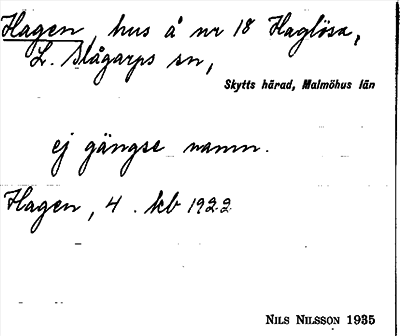 Hagen, hus å nr 18 Haglösa,
L. Slågarps sn,
Skytts härad, Malmöhus län
ej gängse namn.
Hagen, 4. kb 1922
NILS NILSSON 1935